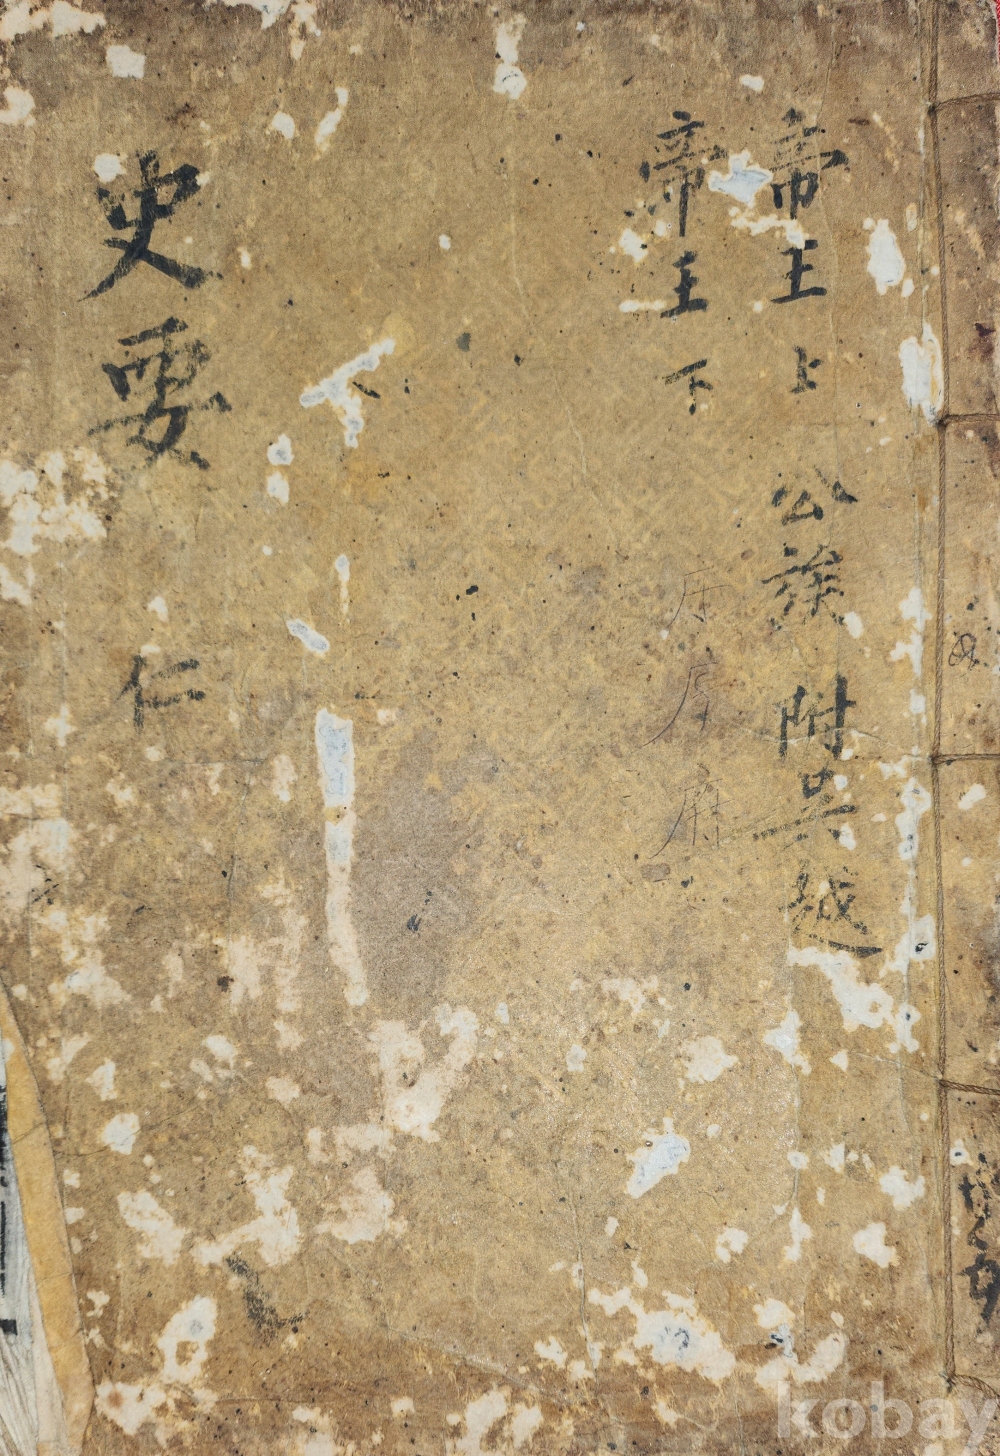 帝王 上 公族 附吳越
帝王 下
史要 仁
kobay